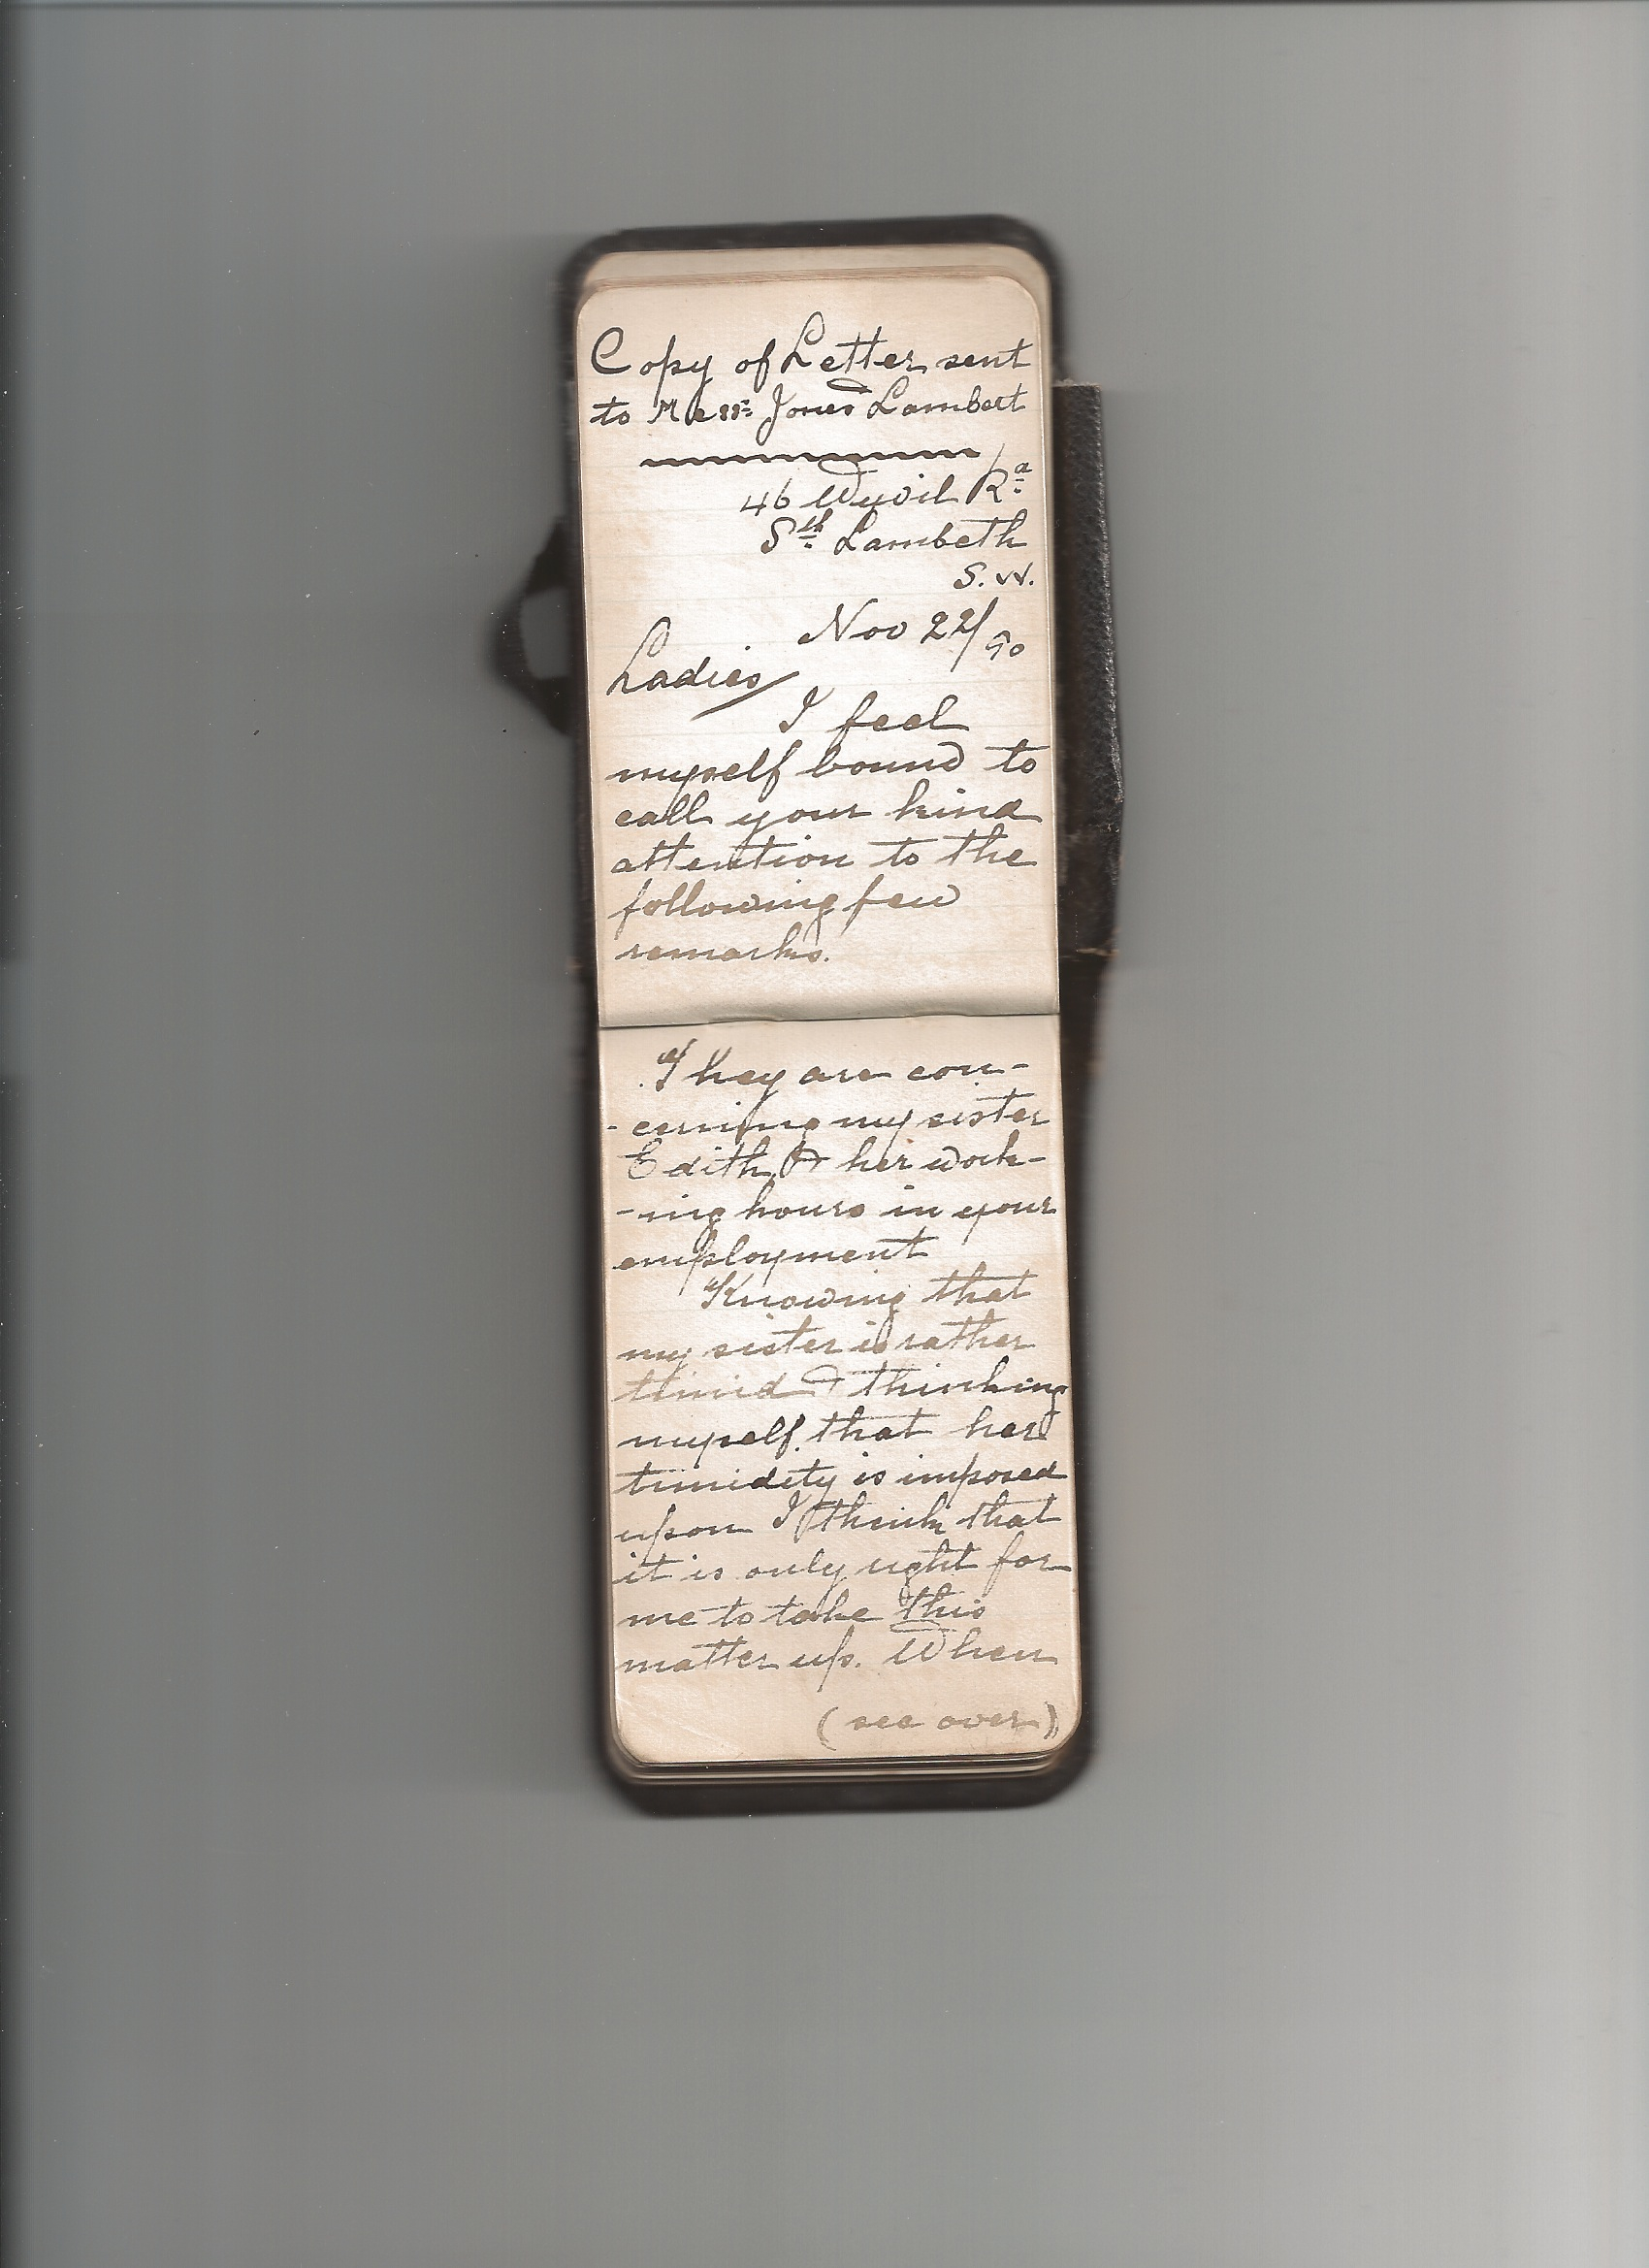 Copy of Letter sent
to Messrs Jones Lambert
46 Wyvil Rd
Sth Lambeth
S.W.
Nov 22/90
Ladies/
I feel
myself bound to
call your kind
attention to the
following few
remarks.
They are con-
-cerning my sister
Edith & her work-
-ing hours in your
employment
Knowing that
my sister is rather
timid & thinking
myself that her
timidety is imposed
upon I think that
it is only right for
me to take this
matter up. When
(see over)